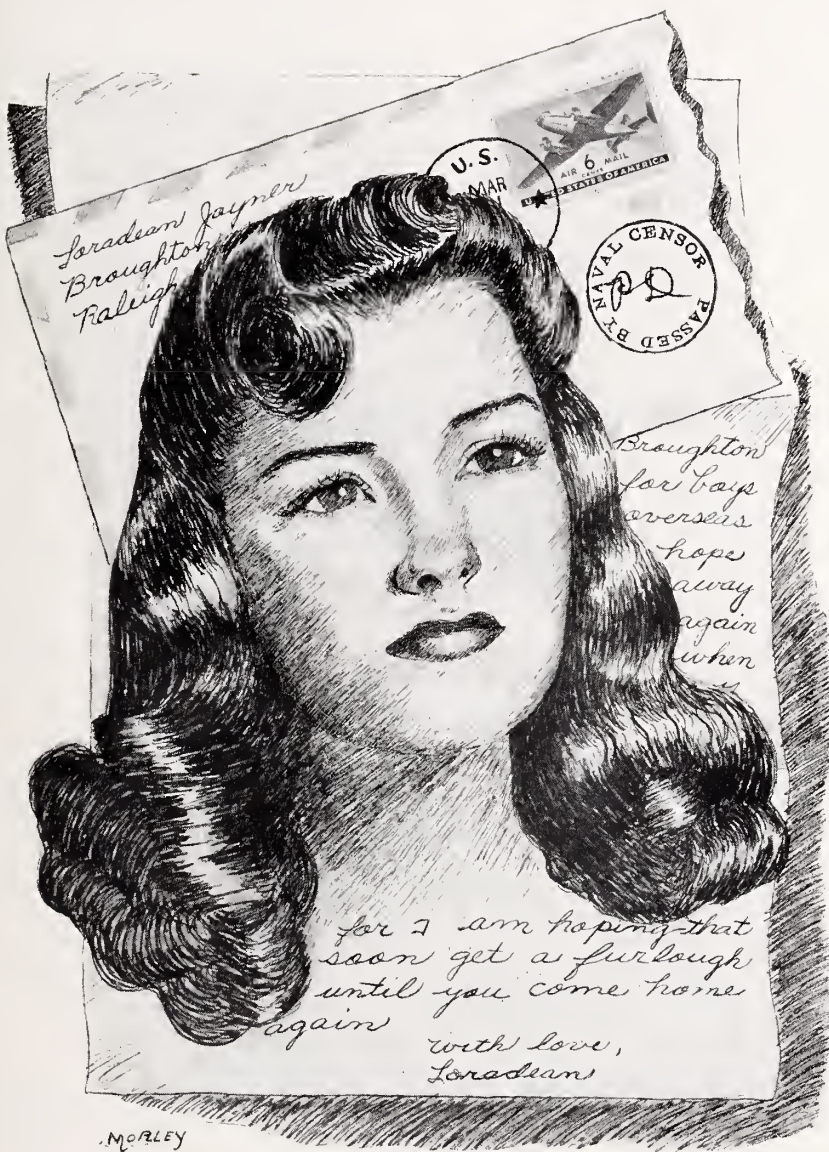 Loradean Jayner
Broughton
Raleigh
U.S.
MAR
AIR 6 MAIL
CENTS
UNITED STATES OF AMERICA
PASSED BY NAVAL CENSOR
Broughton
for boys
overseas
hope
away
again
when
for I am hoping that
soon get a furlough
until you come home
again
with love,
Loradean
MORLEY